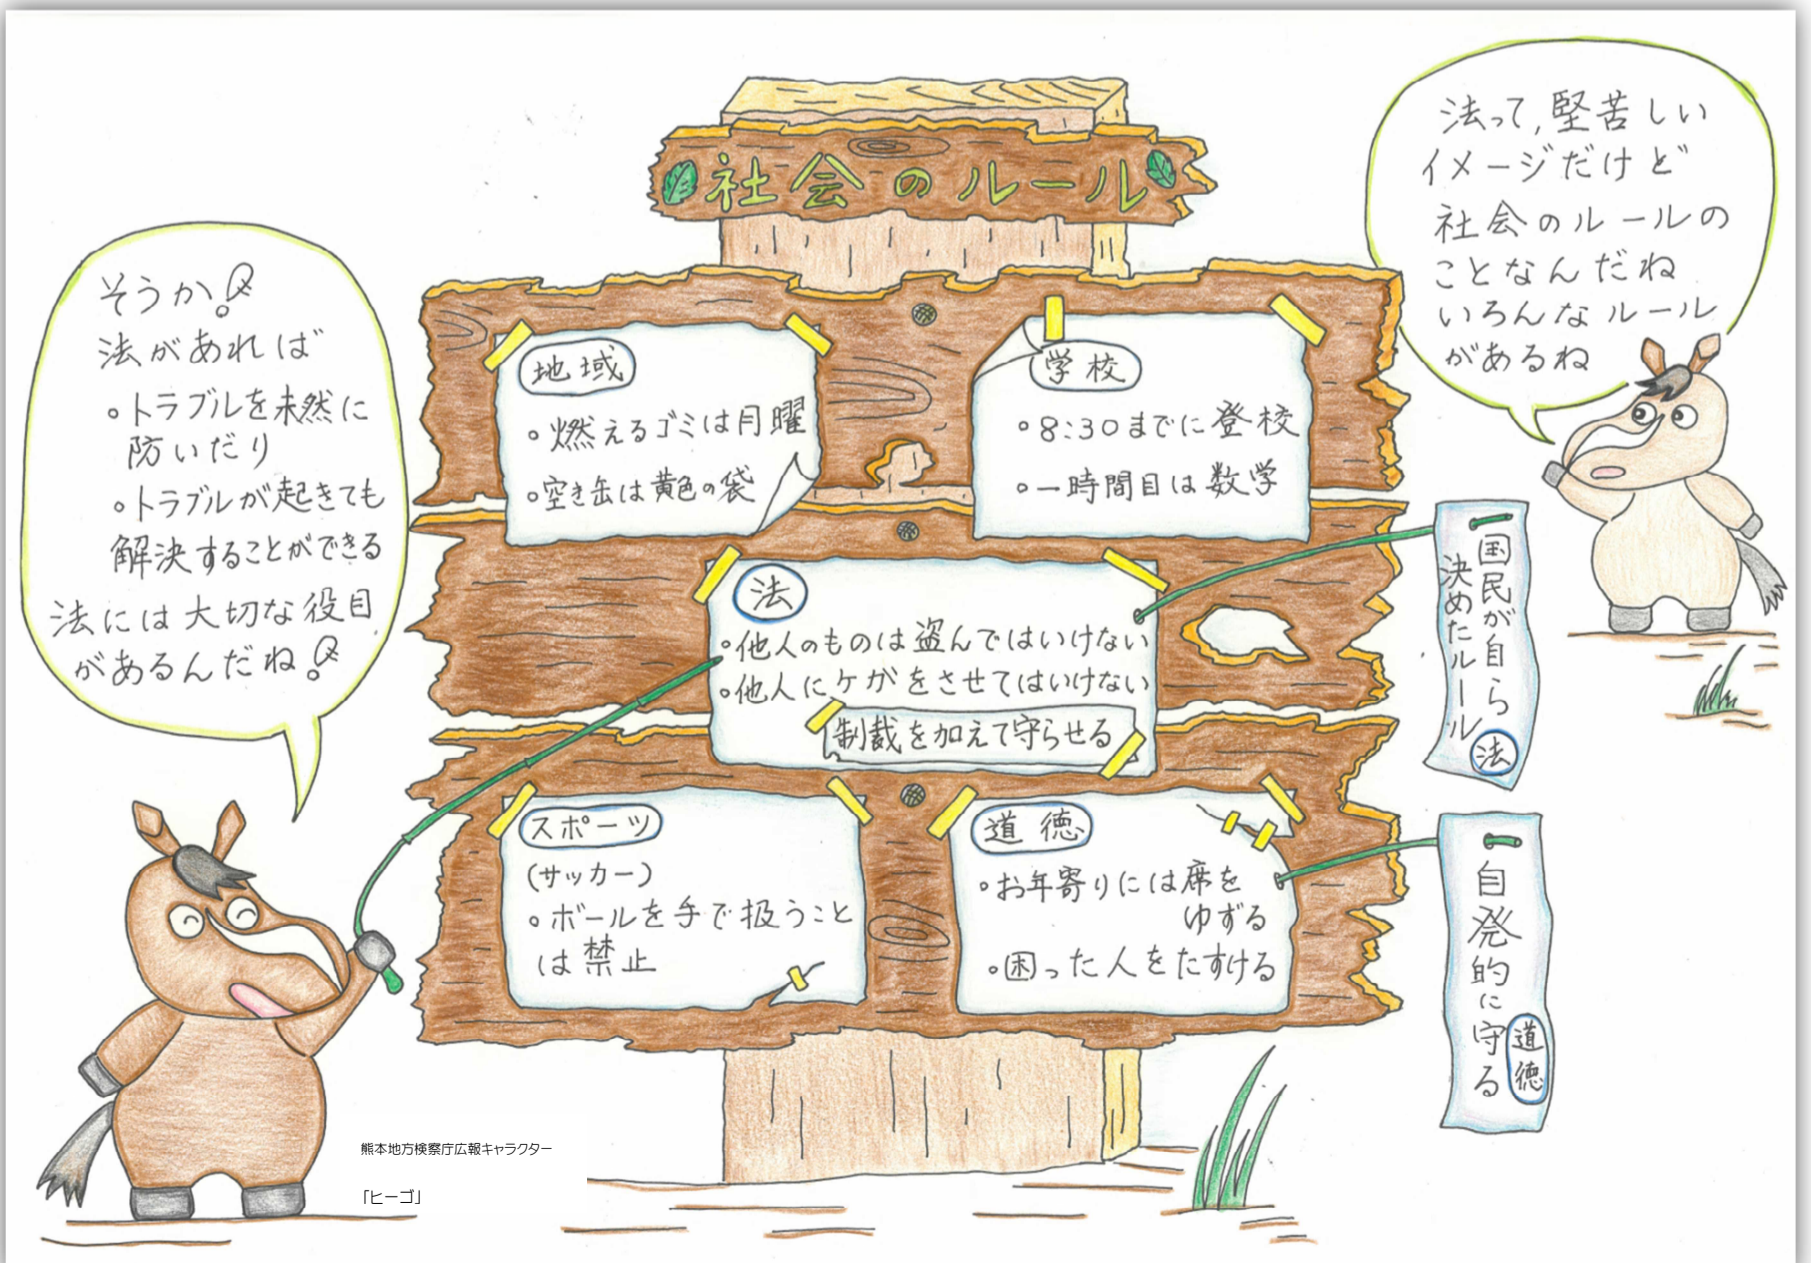 社会のルール
法って,堅苦しい
イメージだけど
社会のルールの
ことなんだね
いろんなルール
があるね
そうか!
法があれば
。トラブルを未然に
防いだり
。トラブルが起きても
解決することができる
法には大切な役目
があるんだね!
地域
。燃えるゴミは月曜
。空き缶は黄色の袋
学校
。8:30までに登校
。一時間目は数学
法
。他人のものは盗んではいけない
。他人にケガをさせてはいけない
制裁を加えて守らせる
国民が自ら
決めたルール
法
スポーツ
(サッカー)
。ボールを手で扱うこと
は禁止
道徳
。お年寄りには席を
ゆずる
。困った人をたすける
自発的に守る
道徳
熊本地方検察庁広報キャラクター
「ヒーゴ」